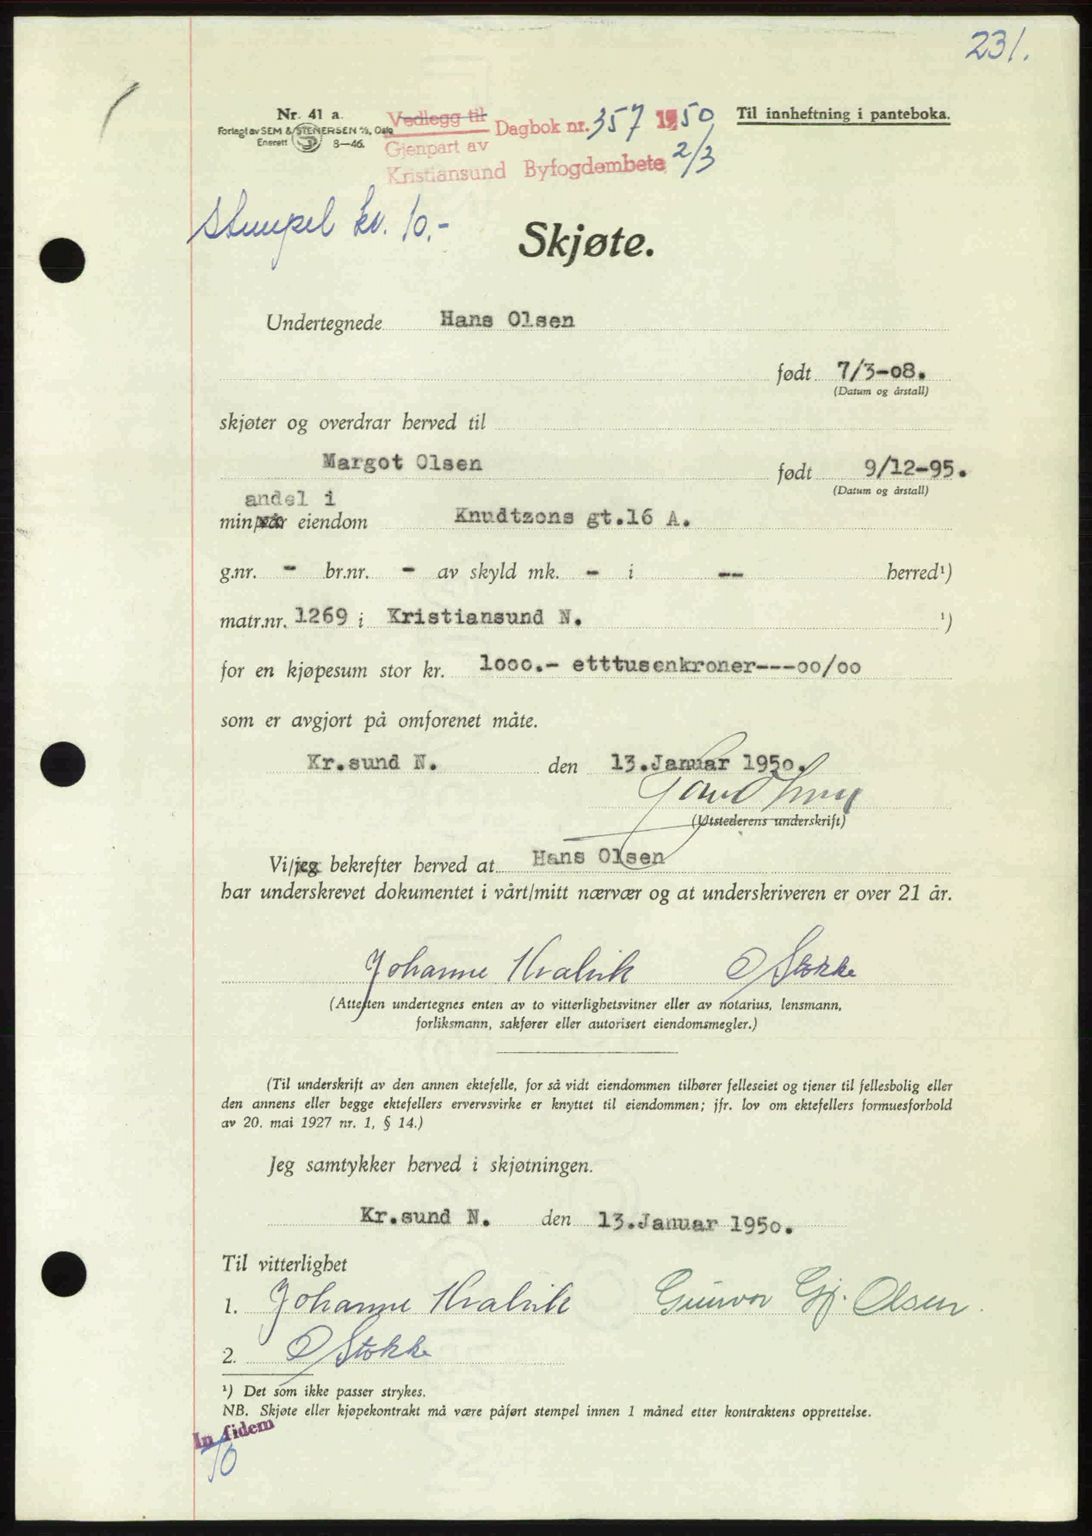 231.
Nr. 41 a.
Forlagt av SEM & STENERSEN A/S, Oslo
Enerett 8-46.
Vedlegg til
Gjenpart av
Dagbok nr. 357 1950
Kristiansund Byfogdembete 2/3
Til innheftning i panteboka.
Stempel kr. 10.-
Skjøte.
Undertegnede Hans Olsen
født 7/3-08.
(Datum og årstall)
skjøter og overdrar herved til
Margot Olsen født 9/12-95.
(Datum og årstall)
andel i
min/vår eiendom Knudtzons gt.16 A.
g.nr. - br.nr. - av skyld mk. - i -- herred¹)
matr.nr. 1269 i Kristiansund N. ¹)
for en kjøpesum stor kr. 1000.- etttusenkroner---00/00
som er avgjort på omforenet måte.
Kr.sund N. den 13.Januar 1950.
Hans Olsen
(Utstederens underskrift)
Vi/jeg bekrefter herved at Hans Olsen
har underskrevet dokumentet i vårt/mitt nærvær og at underskriveren er over 21 år.
Johanne Kvalvik O Stokke
(Attesten undertegnes enten av to vitterlighetsvitner eller av notarius, lensmann,
forliksmann, sakfører eller autorisert eiendomsmegler.)
(Til underskrift av den annen ektefelle, for så vidt eiendommen tilhører felleseiet og tjener til fellesbolig eller
den annens eller begge ektefellers ervervsvirke er knyttet til eiendommen; jfr. lov om ektefellers formuesforhold
av 20. mai 1927 nr. 1, § 14.)
Jeg samtykker herved i skjøtningen.
Kr.sund N. den 13.Januar 1950.
Til vitterlighet
1. Johanne Kvalvik Gunvor Gj. Olsen.
2. O Stokke
¹) Det som ikke passer strykes.
NB. Skjøte eller kjøpekontrakt må være påført stempel innen 1 måned etter kontraktens opprettelse.
In fidem